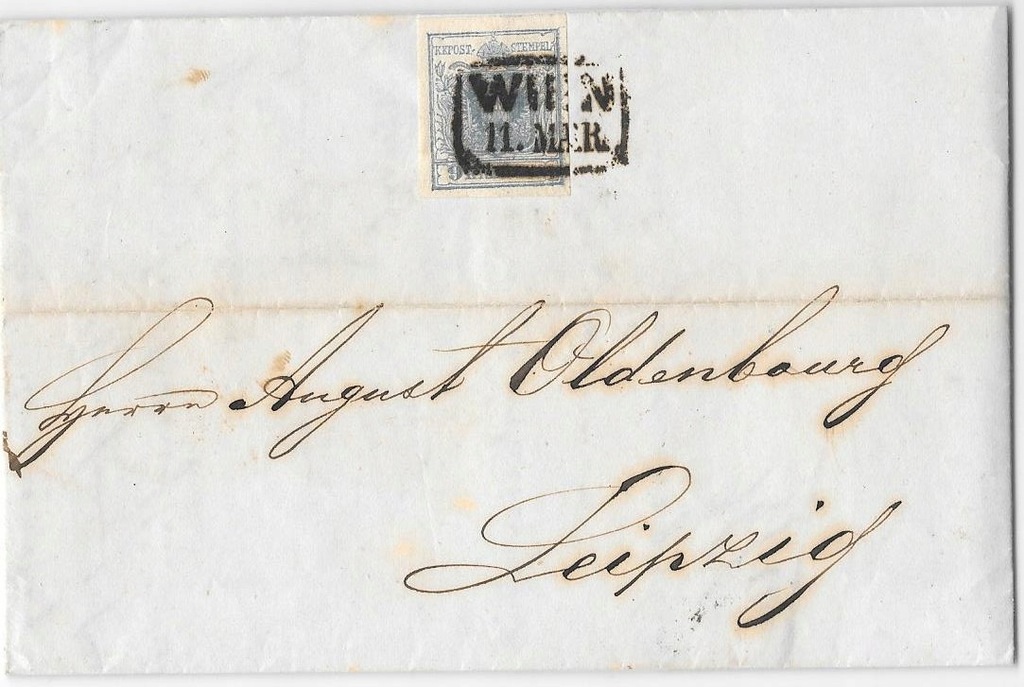 KKPOST-STEMPEL
WIEN
11. MÆR.
9
Herrn August Oldenbourg
Leipzig